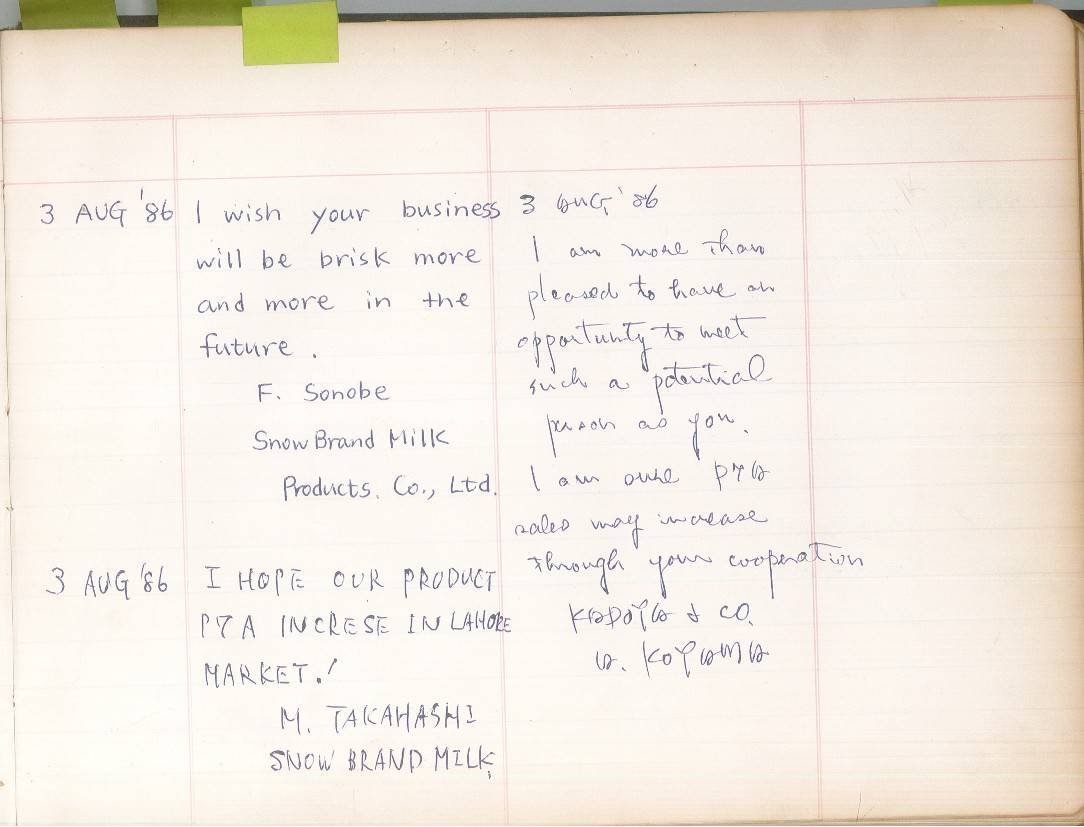 3 AUG '86 I wish your business
will be brisk more
and more in the
future.
F. Sonobe
Snow Brand Milk
Products. Co., Ltd.
3 AUG '86 I HOPE OUR PRODUCT
P7A INCRESE IN LAHORE
MARKET.!
M. TAKAHASHI
SNOW BRAND MILK
3 AUG '86
I am more than
pleased to have an
opportunity to meet
such a potential
person as you.
I am sure P7A
sales may increase
through your cooperation
KADOYA & CO.
A. KOYAMA